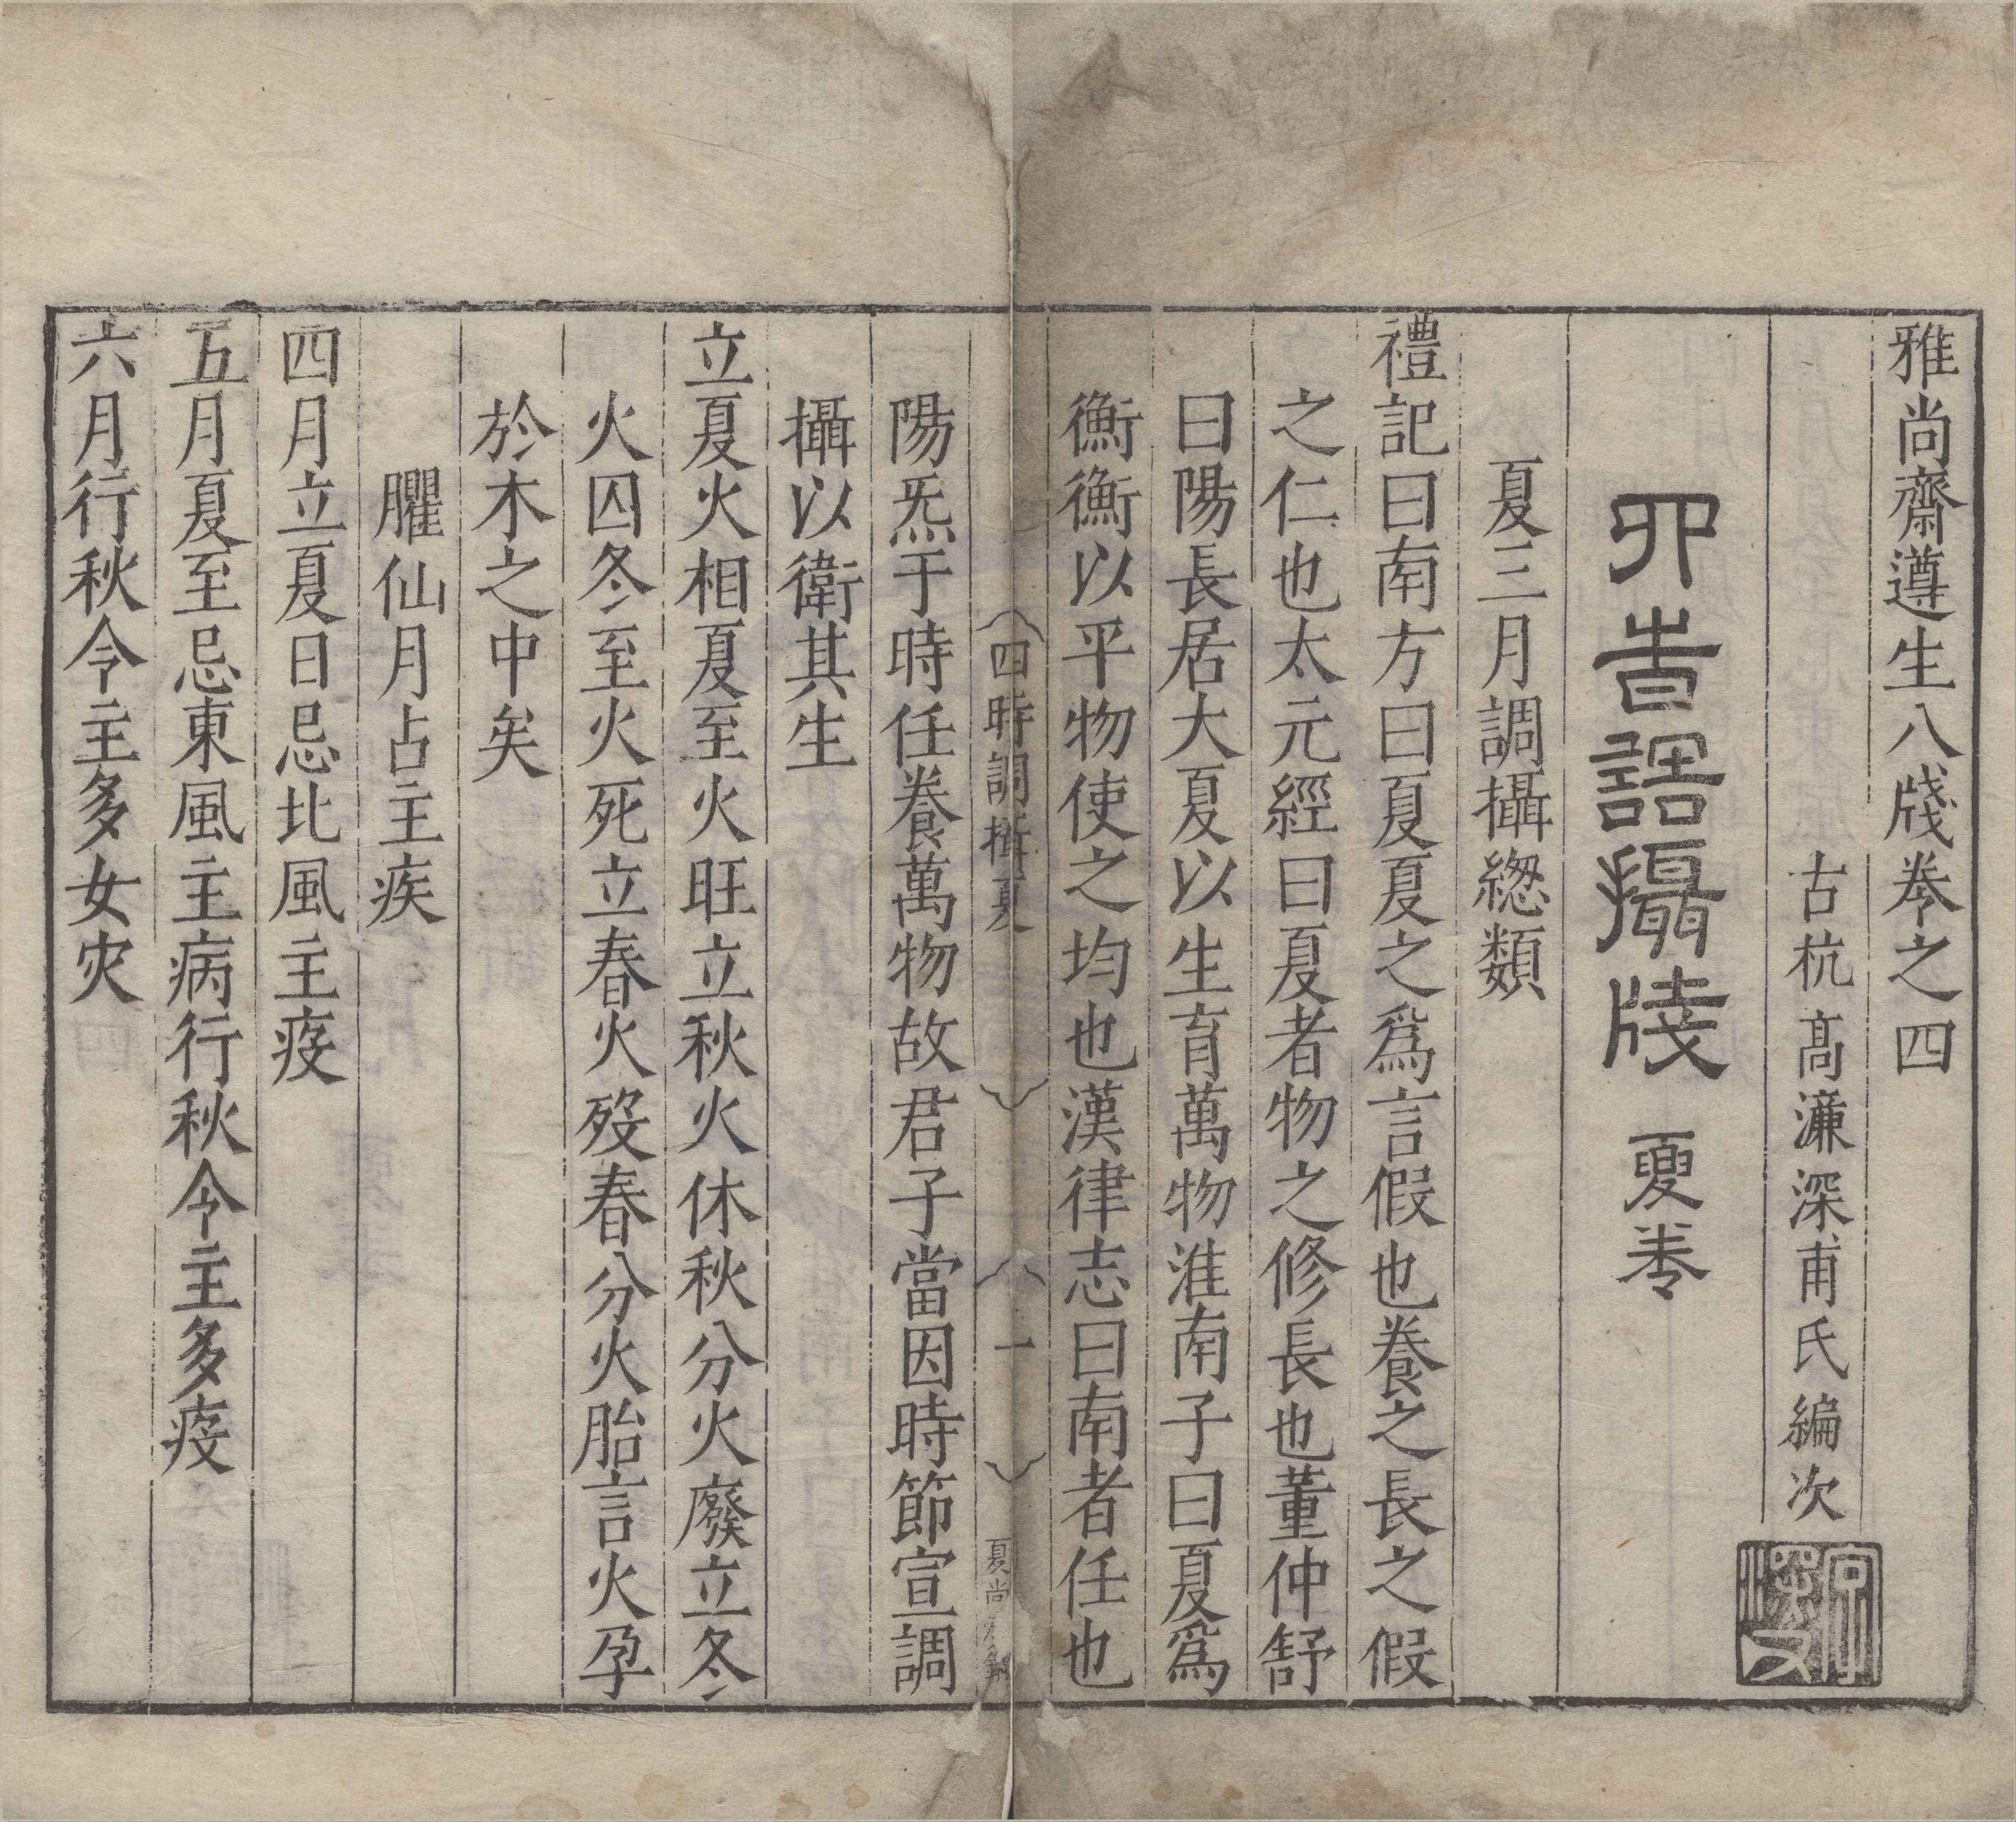 雅尚齋遵生八牋卷之四
古杭高濂深甫氏編次
四時調攝牋 夏卷
夏三月調攝緫類
禮記曰南方曰夏夏之爲言假也養之長之假
之仁也太元經曰夏者物之修長也董仲舒
曰陽長居大夏以生育萬物淮南子曰夏爲
衡衡以平物使之均也漢律志曰南者任也
四時調攝夏
一
陽炁于時任養萬物故君子當因時節宣調
攝以衛其生
立夏火相夏至火旺立秋火休秋分火廢立冬
火囚冬至火死立春火歿春分火胎言火孕
於木之中矣
臞仙月占主疾
四月立夏日忌北風主疫
五月夏至忌東風主病行秋令主多疫
六月行秋令主多女灾